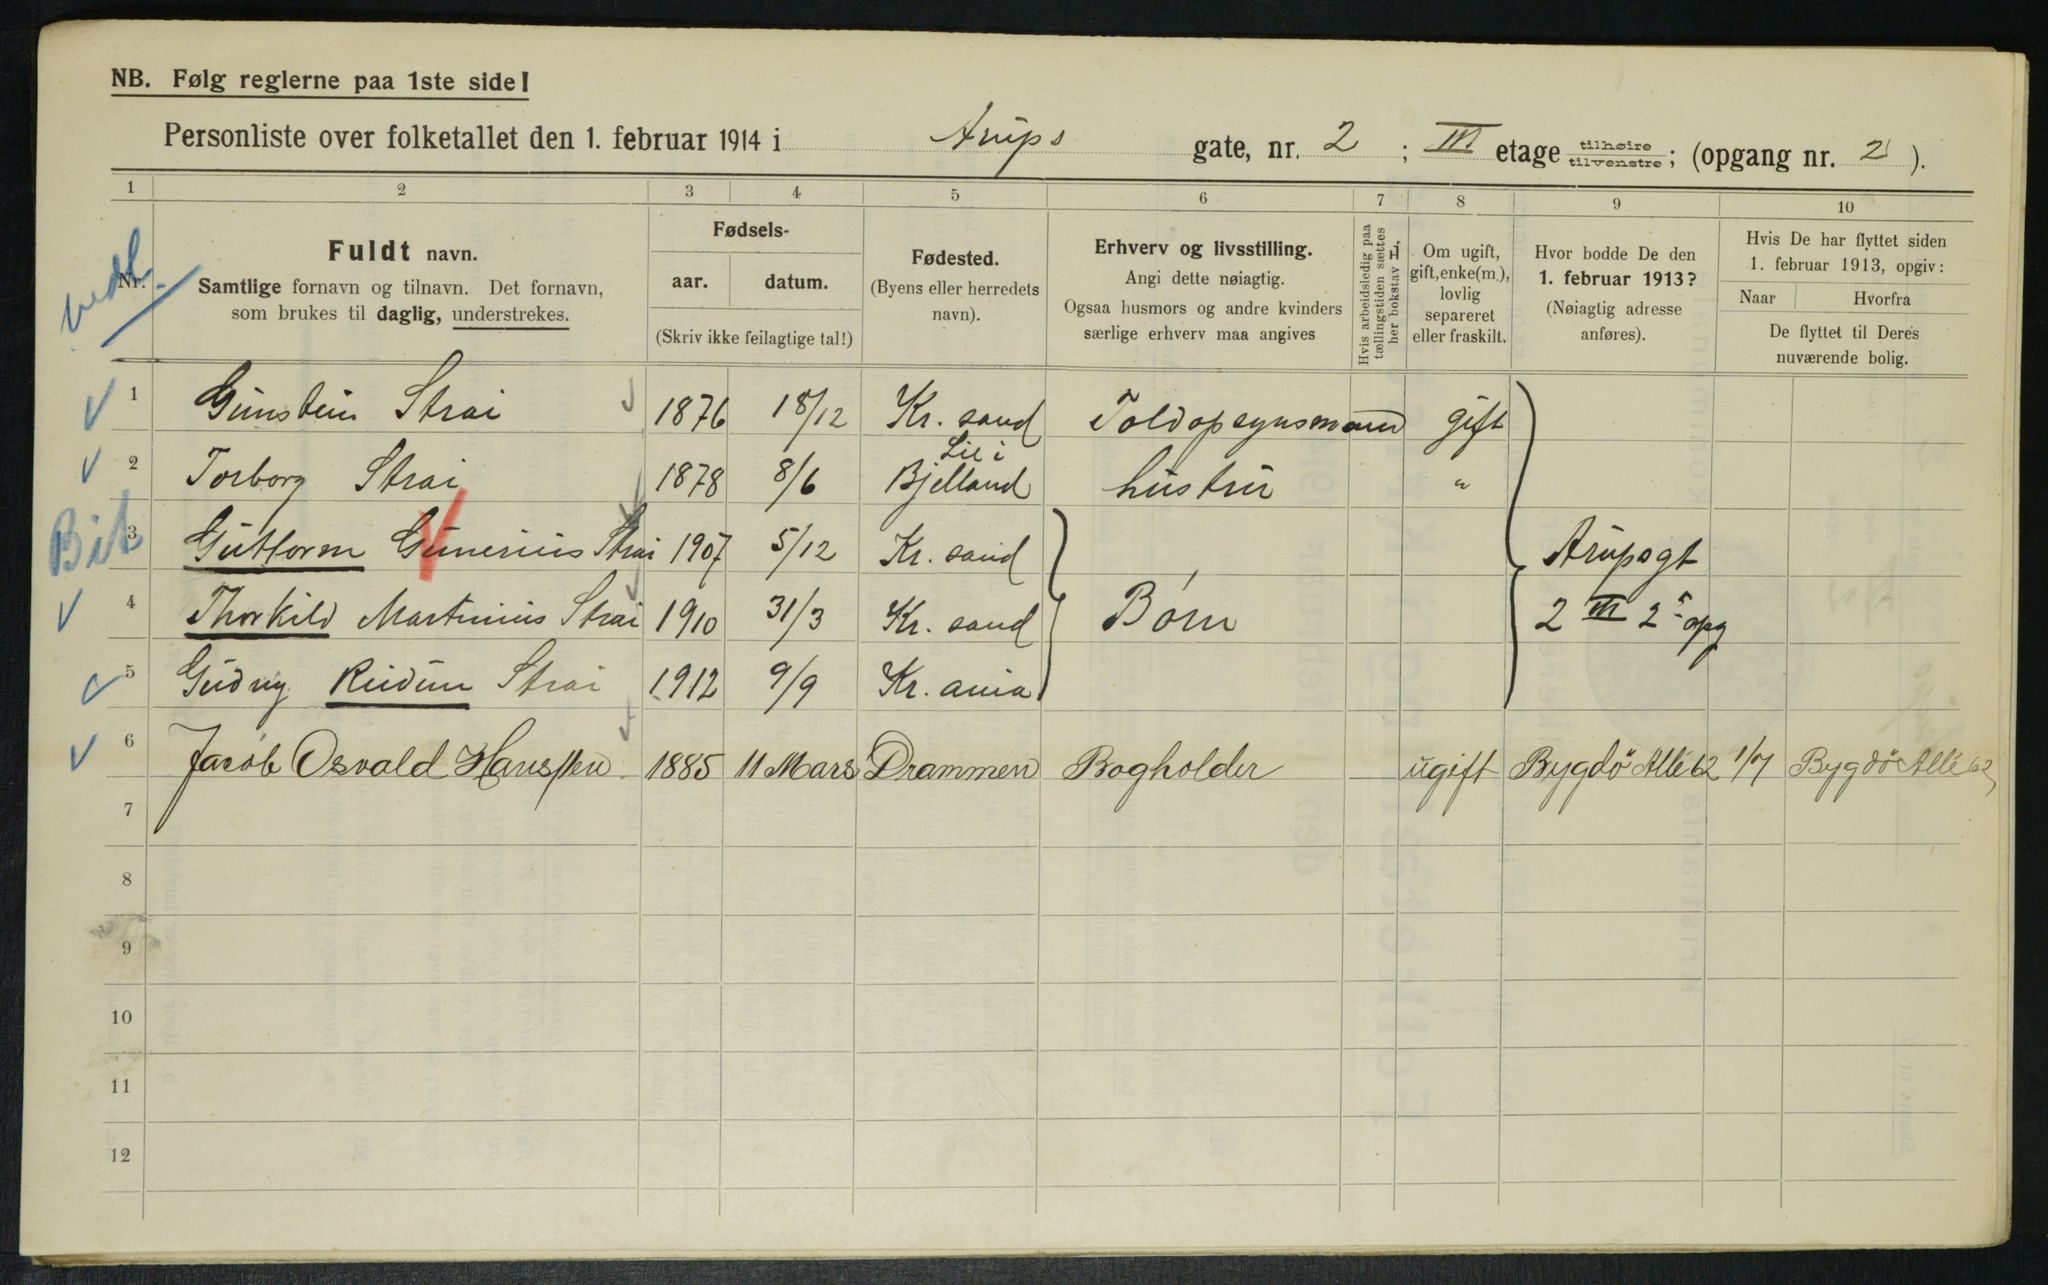 NB. Følg reglerne paa 1ste side!
Personliste over folketallet den 1. februar 1914 i Arups gate, nr. 2 ; III etage tilhøire tilvenstre ; (opgang nr. 2 ).
1 2 3 4 5 6 7 8 9 10
Nr.
Fuldt navn.
Samtlige fornavn og tilnavn. Det fornavn,
som brukes til daglig, understrekes.
Fødsels-
aar. datum.
(Skriv ikke feilagtige tal!)
Fødested.
(Byens eller herredets
navn).
Erhverv og livsstilling.
Angi dette nøiagtig.
Ogsaa husmors og andre kvinders
særlige erhverv maa angives
Hvis arbeidsledig paa
tællingstiden sættes
her bokstav L.
Om ugift,
gift, enke(m.),
lovlig
separeret
eller fraskilt.
Hvor bodde De den
1. februar 1913?
(Nøiagtig adresse
anføres).
Hvis De har flyttet siden
1. februar 1913, opgiv:
Naar Hvorfra
De flyttet til Deres
nuværende bolig.
1 Gunstein Strai 1876 18/12 Kr. sand Toldopsynsmann gift
2 Torborg Strai 1878 8/6 Lie i Bjelland hustru "
Bit
3 Guttorm Gunerius Strai 1907 5/12 Kr. sand Arupsgt
4 Thorkild Martinius Strai 1910 31/3 Kr. sand Børn 2 III 2 opg
5 Gudny Reidun Strai 1912 9/9 Kr. ania
6 Jacob Osvald Hanssen 1885 11 Mars Drammen Bogholder ugift Bygdö Allé 62 1/7 Bygdö Allé 62
7
8
9
10
11
12